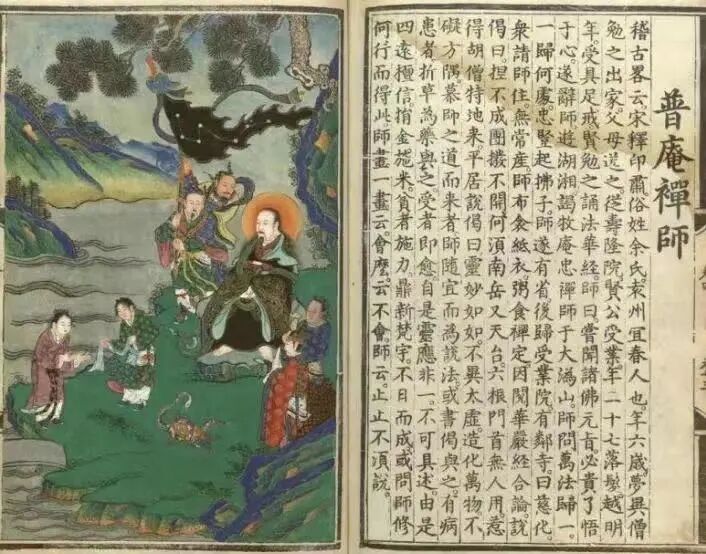 普庵禪師
稽古畧云宋釋印肅俗姓余氏袁州宜春人也年六歲夢異僧
勉之出家父母送之從壽隆院賢公受業年二十七落髮越明
年受具足戒賢勉之誦法華經師曰嘗聞諸佛元旨必貴了悟
于心遂辭師遊湖湘謁牧庵忠禪師于大溈山師問萬法歸一
一歸何處忠竪起拂子師遂有省後歸受業院有鄰寺曰慈化
衆請師住無常産師布衾紙衣粥食禪定因閱華嚴經合論說
偈曰捏不成團撥不開何須南岳又天台六根門首無人用惹
得胡僧特地来平居說偈曰靈妙如如不異太虛造化萬物不
礙方隅慕師之道而来者師隨宜而為說法或書偈與之有病
患者折草為藥與之受者即愈自是靈應非一不可具述由是
四遠檀信捐金施米貧者施力鼎新梵宇不日而成或問師修
何行而得此師畫一畫云會麽云不會師云止止不須說